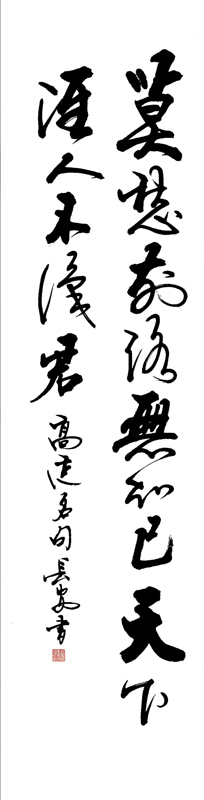 莫愁前路無知己天下
誰人不識君
高适名句長安書